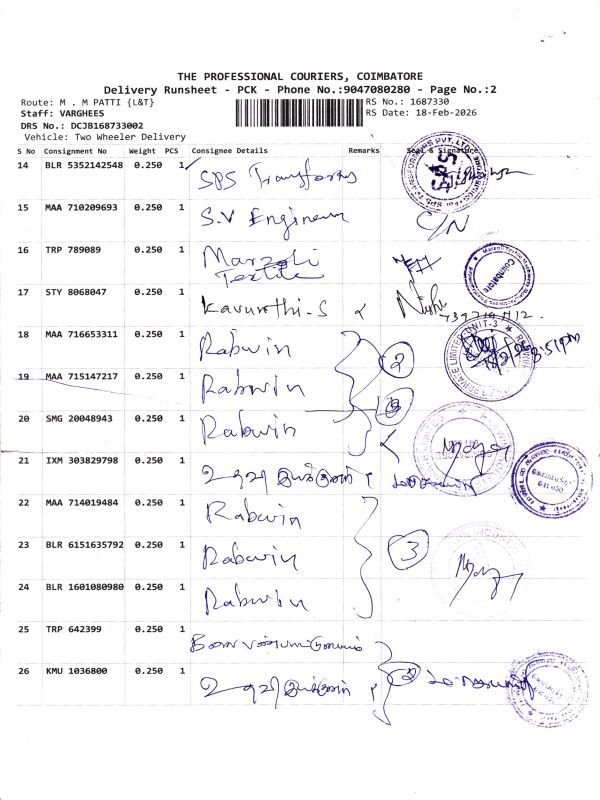 THE PROFESSIONAL COURIERS, COIMBATORE
Delivery Runsheet - PCK - Phone No.:9047080280 - Page No.:2
Route: M . M PATTI {L&T} RS No.: 1687330
Staff: VARGHEES RS Date: 18-Feb-2026
DRS No.: DCJB168733002
Vehicle: Two Wheeler Delivery
S No Consignment No Weight PCS Consignee Details Remarks Seal & Signature
14 BLR 5352142548 0.250 1 SPS Transforms
15 MAA 710209693 0.250 1 S.V Engineer C/N
16 TRP 789089 0.250 1 Marzoli Textile Coimbatore
17 STY 8068047 0.250 1 Kavurthi-S Nishi
18 MAA 716653311 0.250 1 Rabwin 2
19 MAA 715147217 0.250 1 Rabwin
20 SMG 20048943 0.250 1 Rabwin
21 IXM 303829798 0.250 1 உதவி இயக்குனர்
22 MAA 714019484 0.250 1 Rabwin
23 BLR 6151635792 0.250 1 Rabwin 3
24 BLR 1601080980 0.250 1 Rabwin
25 TRP 642399 0.250 1
26 KMU 1036800 0.250 1 உதவி இயக்குனர் 2